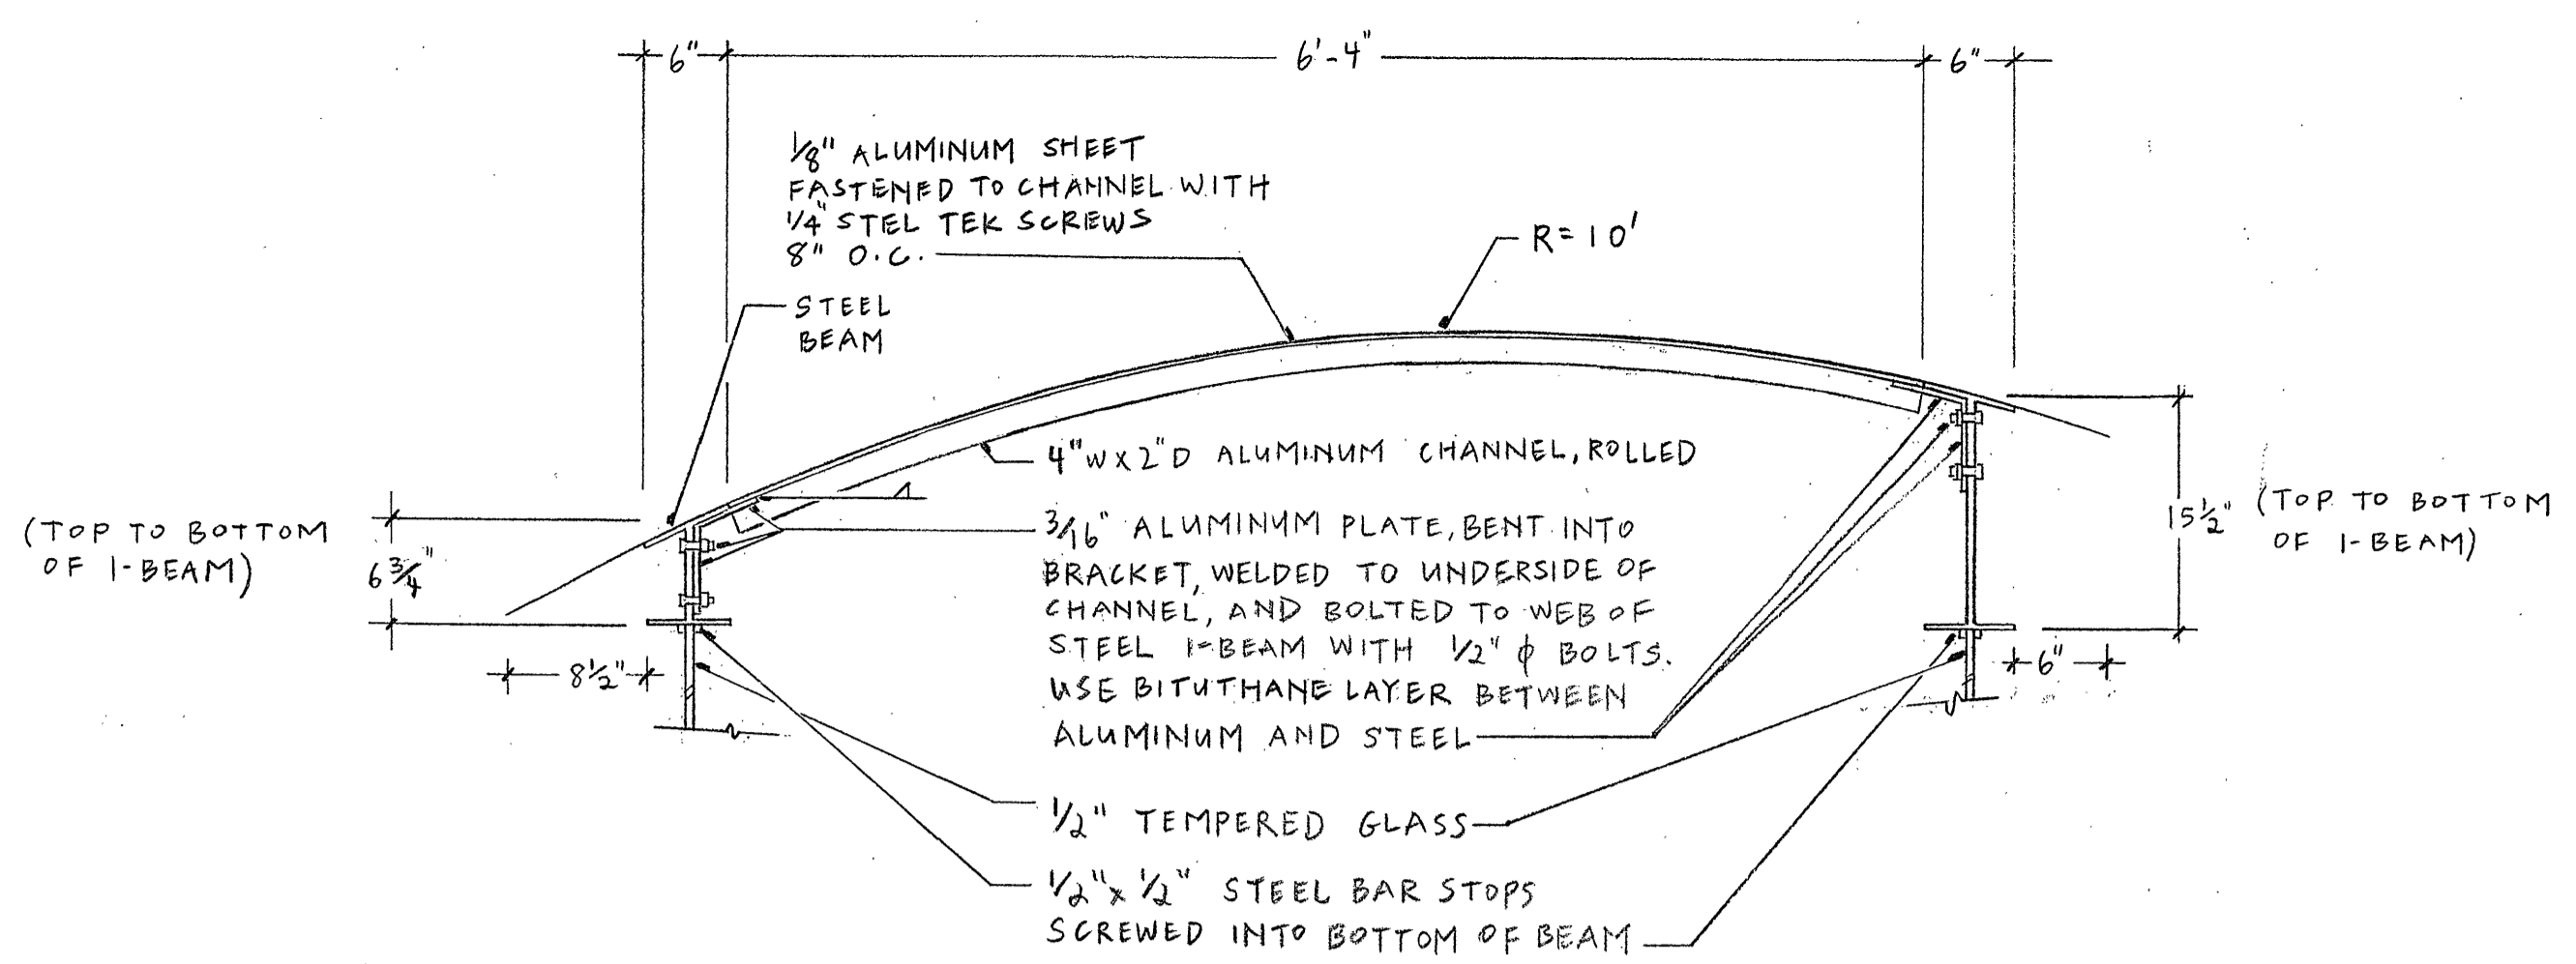 6"
6'-4"
6"
1/8" ALUMINUM SHEET
FASTENED TO CHANNEL WITH
1/4" STEL TEK SCREWS
8" O.C.
R=10'
STEEL
BEAM
4"W X 2"D ALUMINUM CHANNEL, ROLLED
(TOP TO BOTTOM
OF I-BEAM)
6 3/4"
8 1/2"
3/16" ALUMINUM PLATE, BENT INTO
BRACKET, WELDED TO UNDERSIDE OF
CHANNEL, AND BOLTED TO WEB OF
STEEL I-BEAM WITH 1/2" ϕ BOLTS.
USE BITUTHANE LAYER BETWEEN
ALUMINUM AND STEEL
15 1/2"
(TOP TO BOTTOM
OF I-BEAM)
6"
1/2" TEMPERED GLASS
1/2" x 1/2" STEEL BAR STOPS
SCREWED INTO BOTTOM OF BEAM